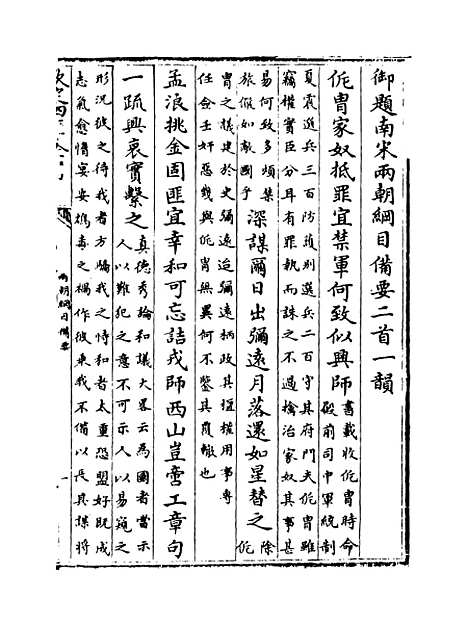 御題南宋兩朝綱目備要二首一韻
侂胄家奴抵罪宜禁軍何致似興師
書載收侂胄時命
殿前司中軍統制
夏震選兵三百防護別選兵二百守其府門夫侂胄雖
竊權實臣分耳有罪執而誅之不過擒治家奴其事甚
易何致多煩禁
旅儼如敵國乎
深謀爾日出彌遠月落還如星替之
除
侂
胄之議建於史彌遠迨彌遠柄政其擅權用事專
任僉壬奸惡幾與侂胄無異何不鑒其覆轍也
孟浪挑金固匪宜幸和可忘詰戎師西山豈啻工章句
一疏興衰實繫之
真德秀論和議大畧云為國者當示
人以難犯之意不可示人以易窺之
形況彼之待我者方驕我之恃和者太重恐盟好既成
志氣愈惰宴安鴆毒之禍作彼乗我不備以長其謀將
兩朝綱目備要
一